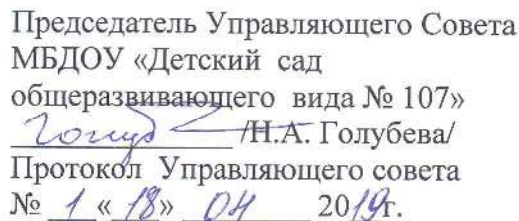 Председатель Управляющего Совета
МБДОУ «Детский сад
общеразвивающего вида № 107»
/Н.А. Голубева/
Протокол Управляющего совета
№ 1 « 18 » 04 2019г.